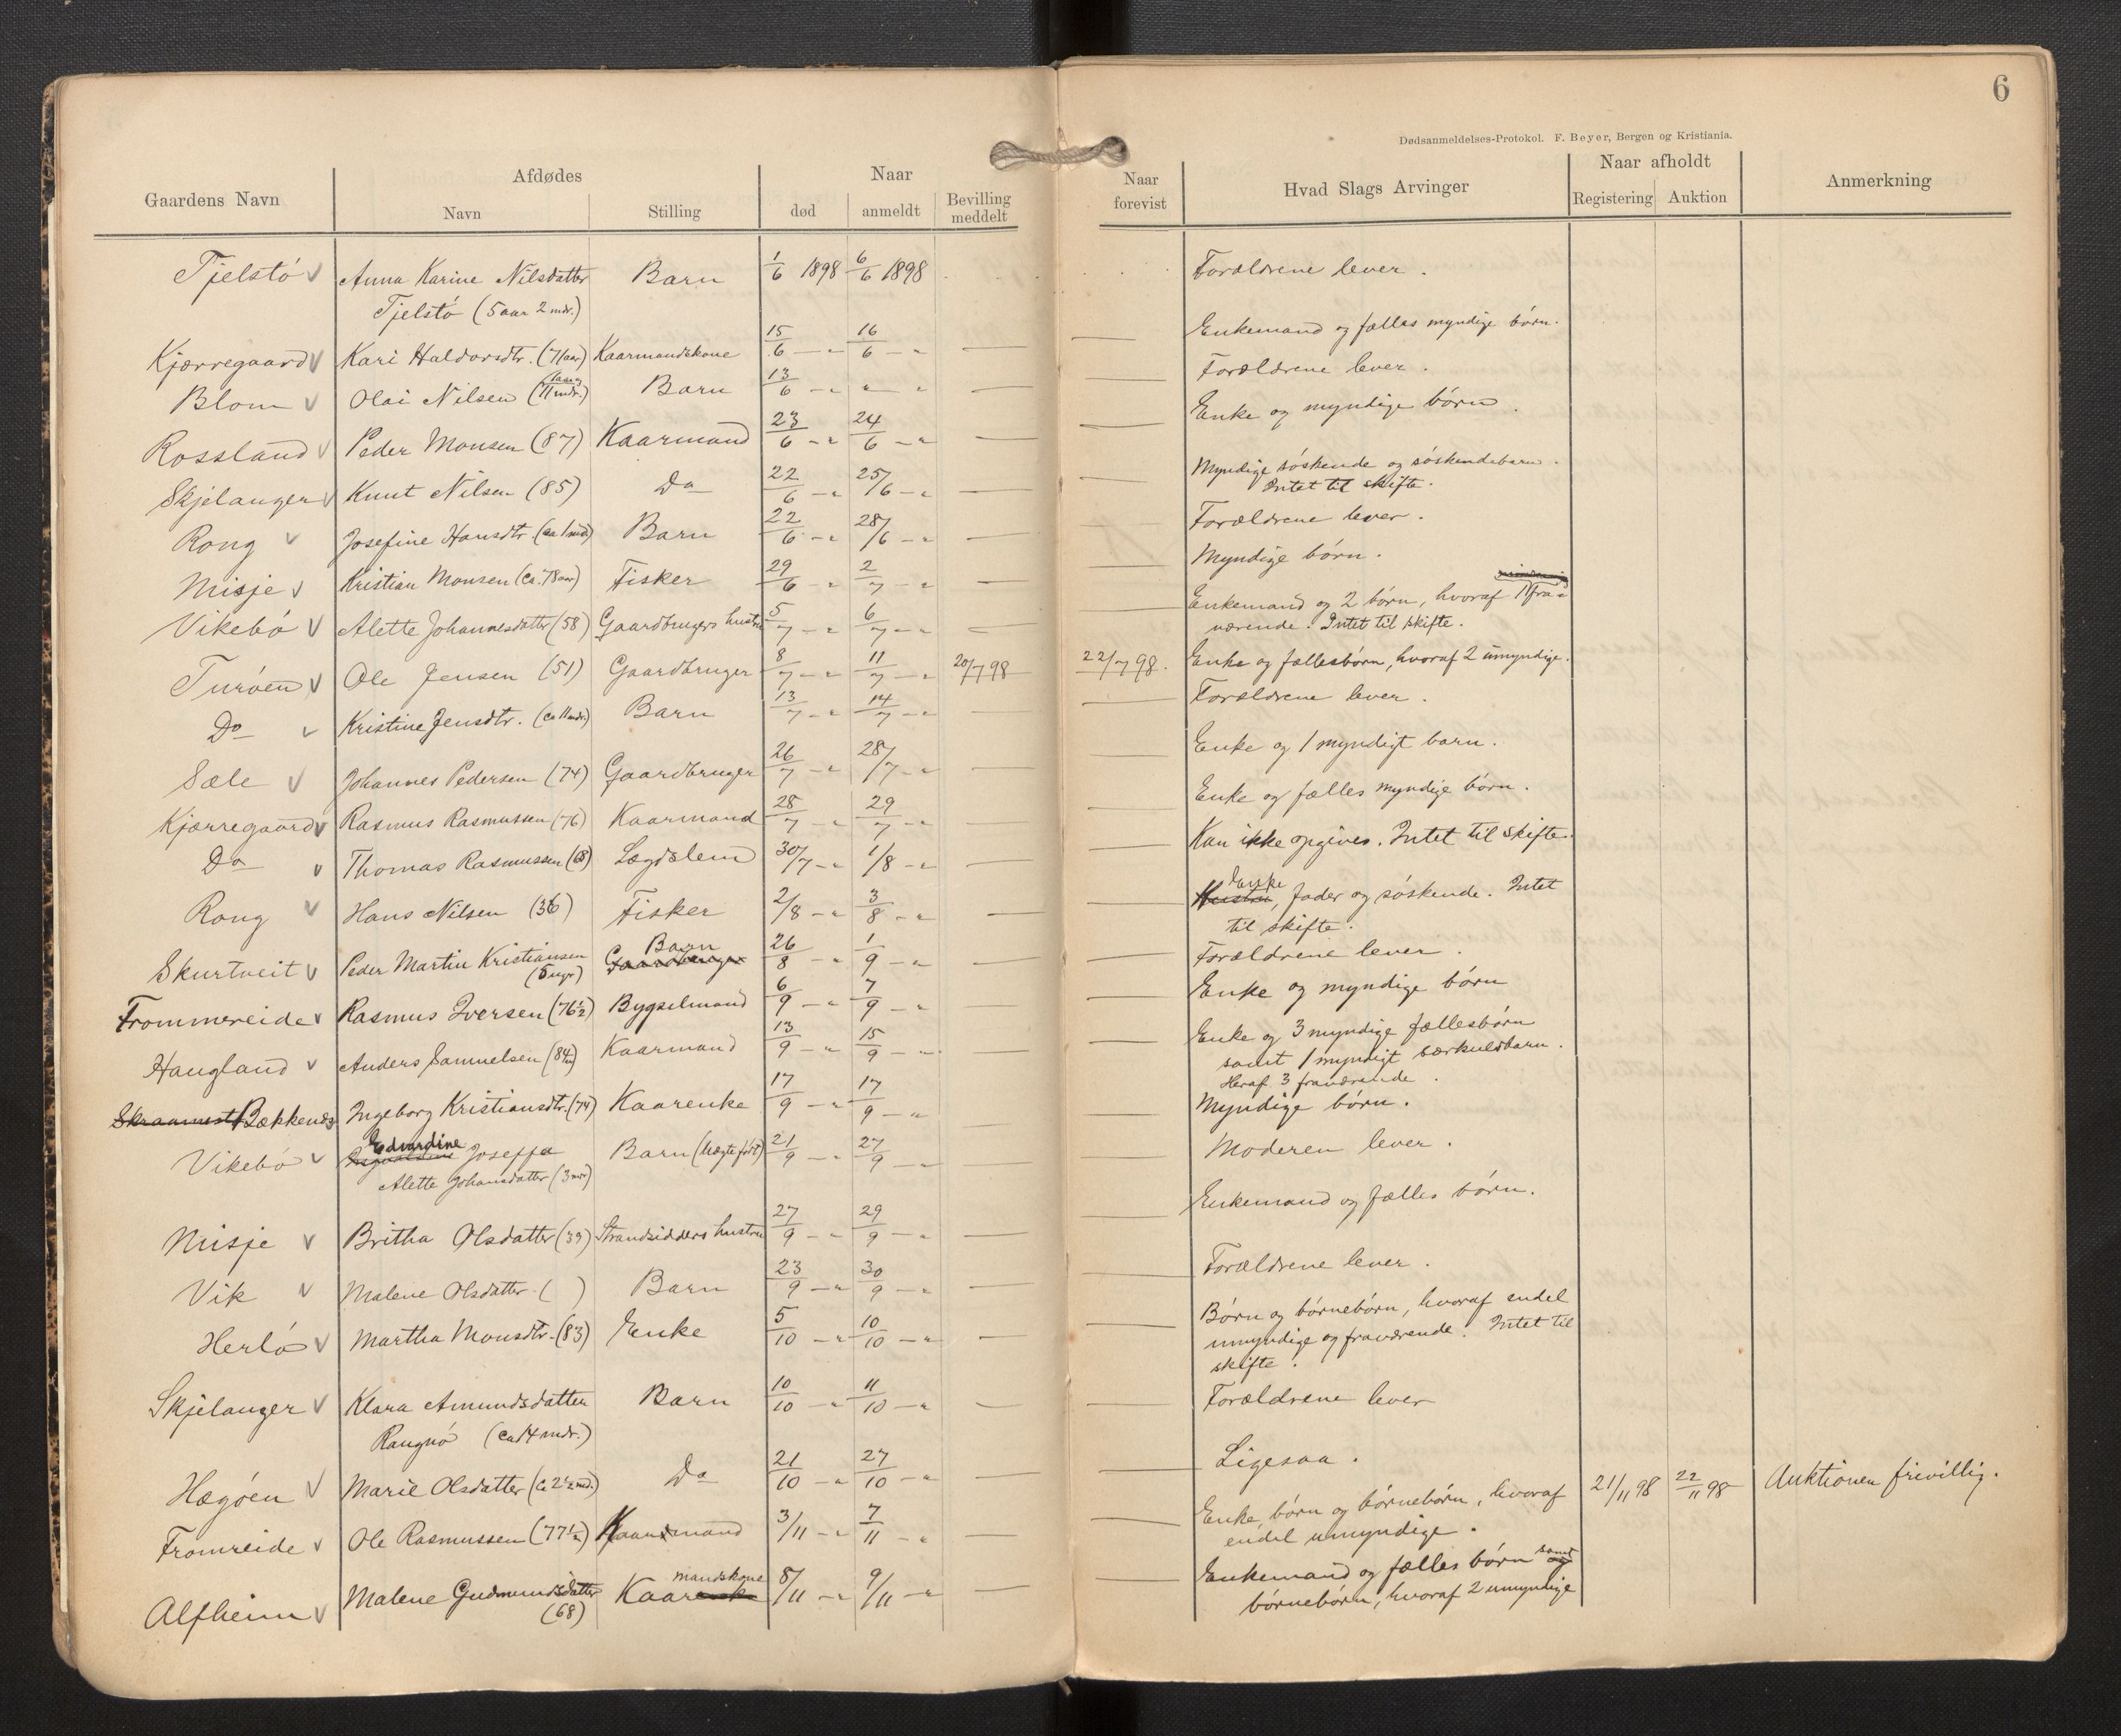 6
Dødsanmeldelses-Protokol. F. Beyer, Bergen og Kristiania.
Gaardens Navn | Afdødes | Naar | Naar forevist | Hvad Slags Arvinger | Naar afholdt | Anmerkning
Navn | Stilling | død | anmeldt | Bevilling meddelt | Registering | Auktion
Tjelstö ✓ | Anna Karine Nilsdatter | Barn | 1/6 1898 | 6/6 1898 | Forældrene lever.
Tjelstö (5 aar 2 mdr.)
Kjærregaard ✓ | Kari Haldorsdtr. (71 aar) | Kaarmandskone | 15/6 — " | 16/6 — " | — | — | Enkemand og fælles myndige börn.
Blom ✓ | Olai Nilsen (11 mdr.) | Barn | 13/6 — " | " " | — | — | Forældrene lever.
Rossland ✓ | Peder Monsen (87) | Kaarmand | 23/6 — " | 24/6 — " | — | — | Enke og myndige börn.
Skjelanger ✓ | Knut Nilsen (85) | Do | 22/6 — " | 25/6 — " | — | — | Myndige söskende og söskendebarn.
Intet til skifte.
Rong ✓ | Josefine Hansdtr. (ca 1 md) | Barn | 22/6 — " | 28/6 — " | — | — | Forældrene lever.
Misje ✓ | Kristian Monsen (ca. 78 aar) | Fisker | 29/6 — " | 2/7 — " | — | — | Myndige börn.
Vikebö ✓ | Alette Johannesdatter (58) | Gaardbrugers hustru | 5/7 — " | 6/7 — " | — | — | Enkemand og 2 börn, hvoraf 1 fra-
værende. Intet til skifte.
Turöen ✓ | Ole Jensen (51) | Gaardbruger | 8/7 — " | 11/7 — " | 20/7 98 | 22/7 98. | Enke og fællesbörn, hvoraf 2 umyndige.
Do ✓ | Kristine Jensdtr. (ca 11 mdr.) | Barn | 13/7 — " | 14/7 — " | — | — | Forældrene lever.
Sæle ✓ | Johannes Pedersen (74) | Gaardbruger | 26/7 — " | 28/7 — " | — | — | Enke og 1 myndigt barn.
Kjærregaard ✓ | Rasmus Rasmussen (76) | Kaarmand | 28/7 — " | 29/7 — " | — | — | Enke og fælles myndige börn.
Do ✓ | Thomas Rasmussen (68) | Lægdslem | 30/7 — " | 1/8 — " | — | — | Kan ikke opgives. Intet til skifte.
Rong ✓ | Hans Nilsen (36) | Fisker | 2/8 — " | 3/8 — " | — | — | Enke, fader og söskende. Intet
til skifte.
Skurtveit ✓ | Peder Martin Kristiansen | Gaardbruger Barn | 26/8 — " | 1/9 — " | — | — | Forældrene lever.
(5 uger)
Frommereide ✓ | Rasmus Iversen (76½) | Bygselmand | 6/9 — " | 7/9 — " | — | Enke og myndige börn
Haugland ✓ | Anders Samuelsen (84) | Kaarmand | 13/9 — " | 15/9 — " | — | — | Enke og 3 myndige fællesbörn
samt 1 myndigt særkuldbarn.
Heraf 3 fraværende.
Bækkenes | Ingeborg Kristiansdtr. (74) | Kaarenke | 17/9 — " | 17/9 — " | — | — | Myndige börn.
Vikebö ✓ | Edvardine Joseffa | Barn (uægte født) | 21/9 — " | 27/9 — " | — | — | Moderen lever.
Alette Johansdatter (3 mdr)
Misje ✓ | Britha Olsdatter (39) | Strandsidders hustru | 27/9 — " | 29/9 — " | — | — | Enkemand og fælles börn.
Vik ✓ | Malene Olsdatter ( ) | Barn | 23/9 — " | 30/9 — " | — | — | Forældrene lever.
Herlö ✓ | Martha Monsdtr. (83) | Enke | 5/10 — " | 10/10 — " | — | — | Börn og börnebörn, hvoraf endel
umyndige og fraværende. Intet til
skifte.
Skjelanger ✓ | Klara Amundsdatter | Barn | 10/10 — " | 11/10 — " | — | — | Forældrene lever
Rangnö (ca 14 mdr.)
Hægöen ✓ | Marie Olsdatter (ca 2½ md.) | Do | 21/10 — " | 27/10 — " | — | — | Ligesaa.
Fromreide ✓ | Ole Rasmussen (77½) | Kaarmand | 3/11 — " | 7/11 — " | — | — | Enke, börn og börnebörn, hvoraf | 21/11 98 | 22/11 98 | Auktionen frivillig.
endel umyndige.
Alfheim ✓ | Malene Gudmundsdatter | Kaarmandskone | 8/11 — " | 9/11 — " | — | — | Enkemand og fælles börn samt
(68) | börnebörn, hvoraf 2 umyndige